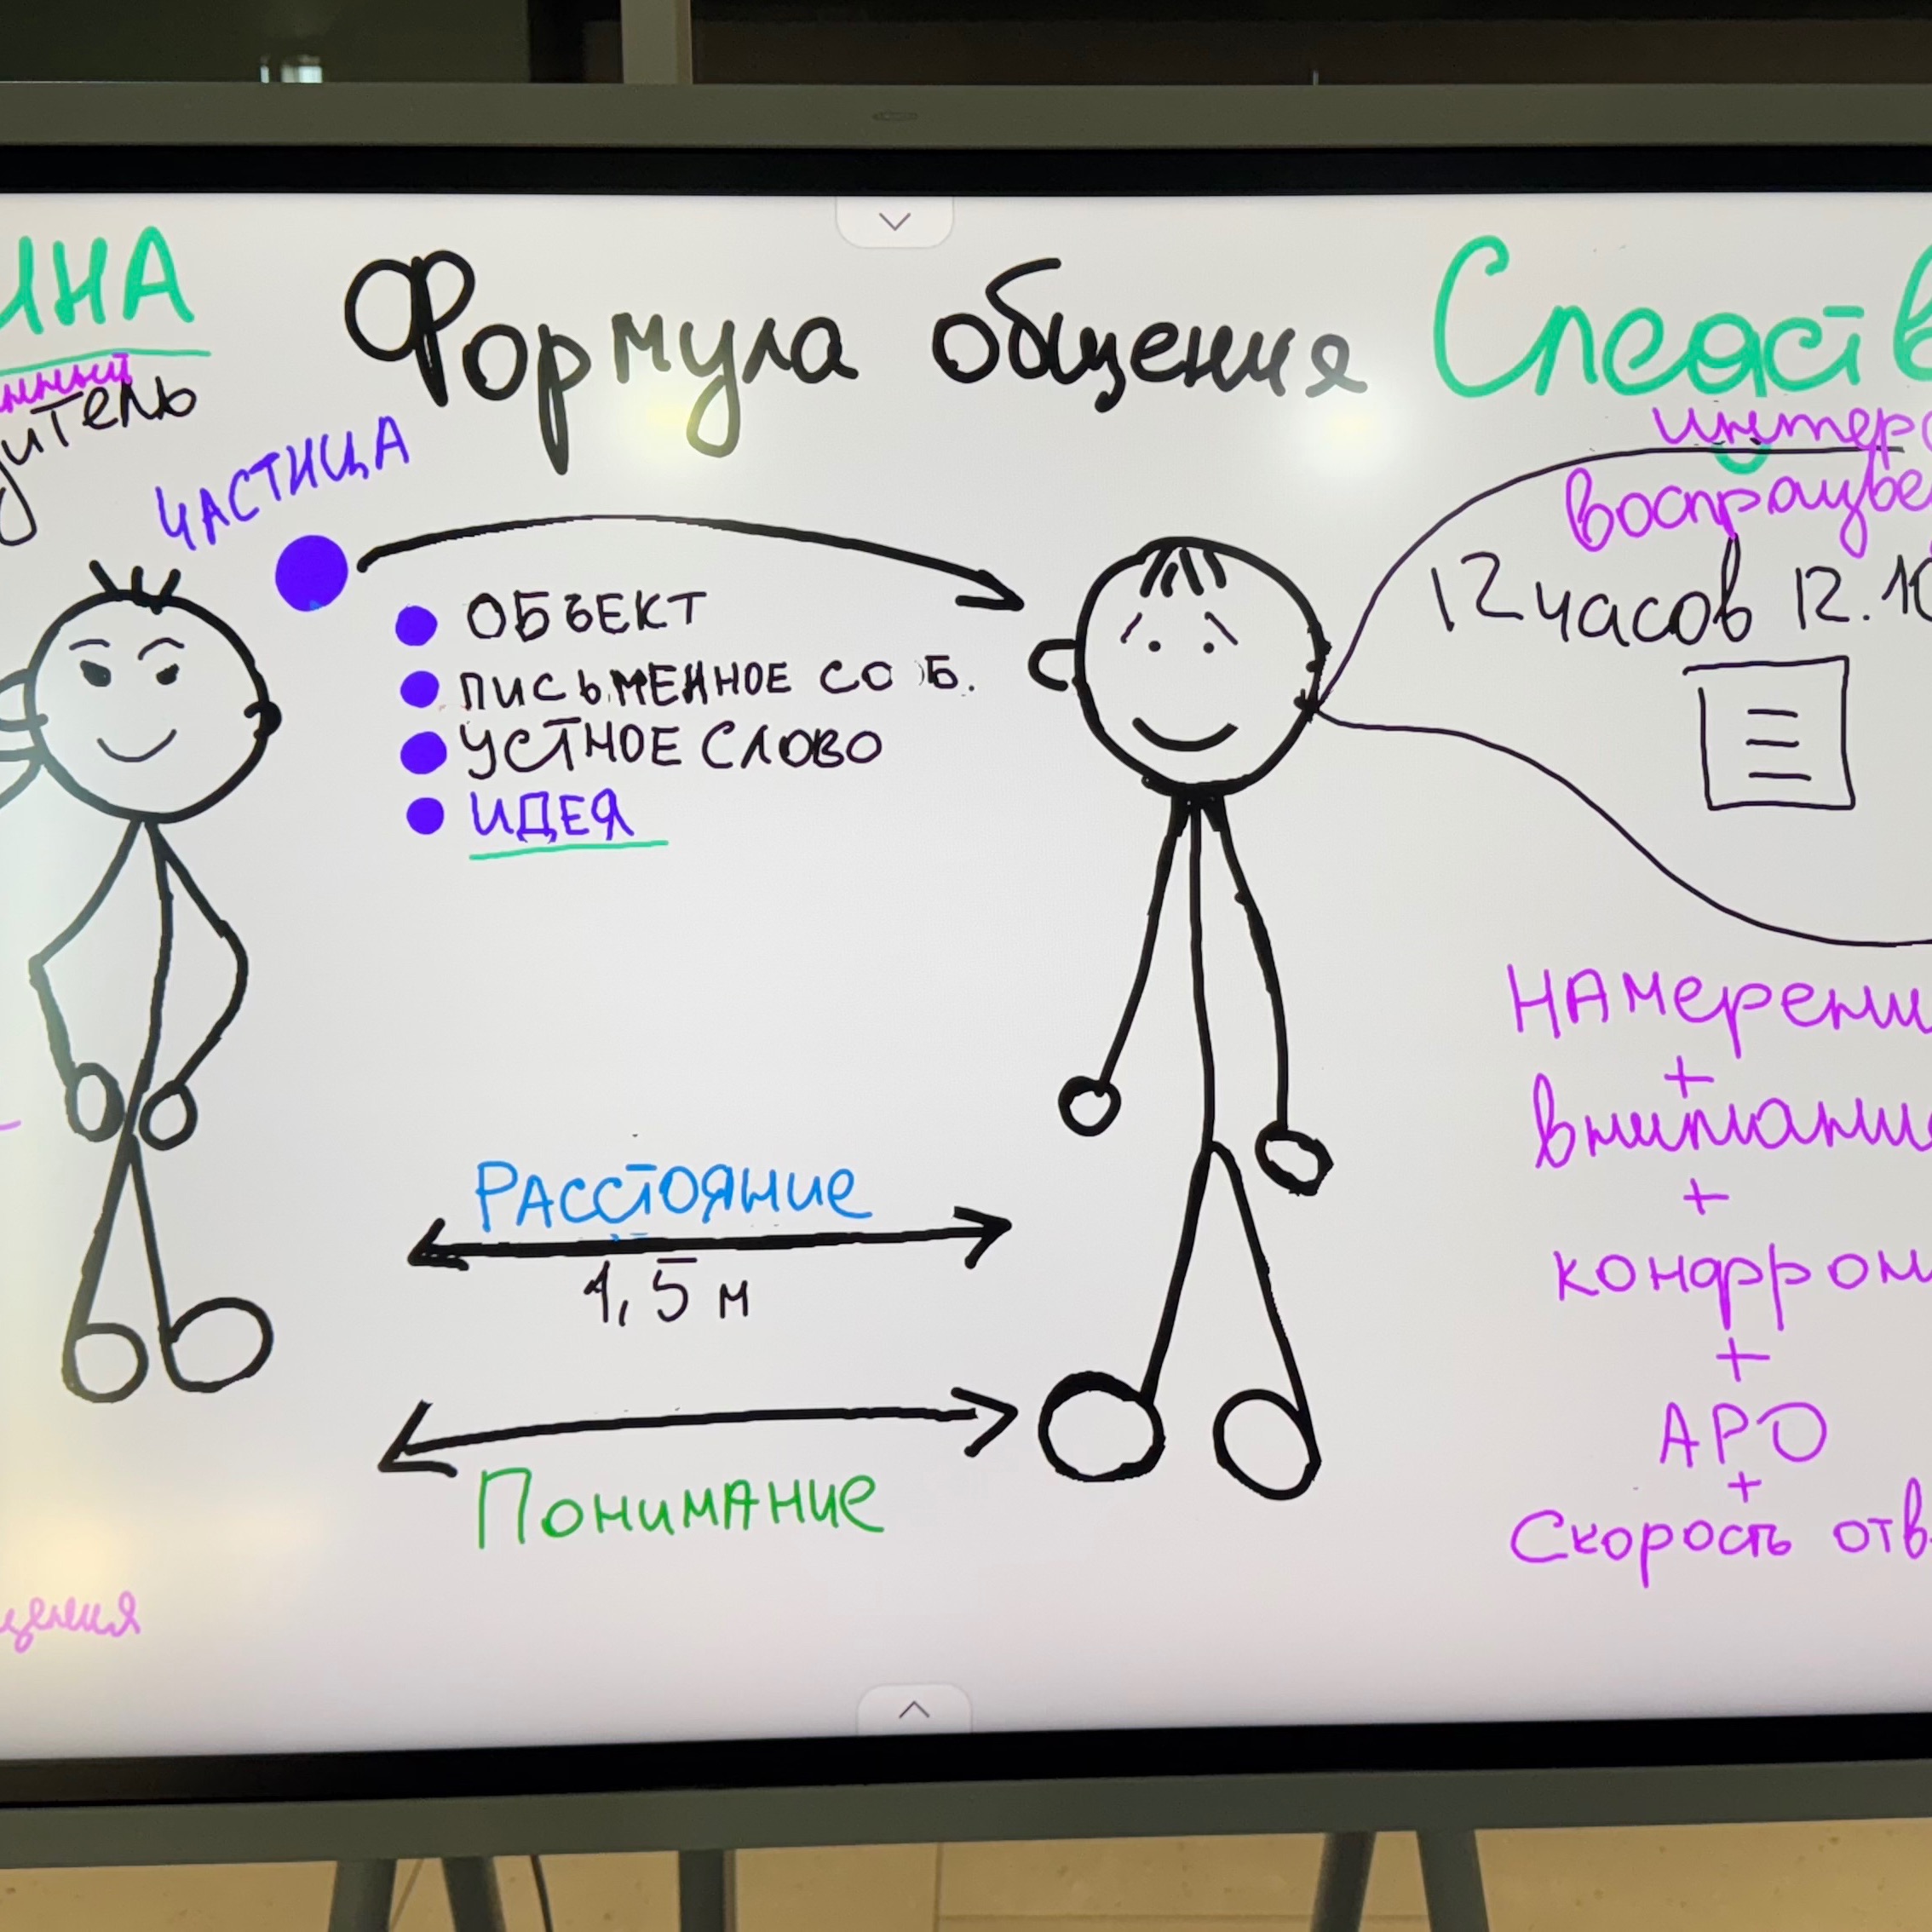 ИНА
Формула общения
Следств
нный
итель
ЧАСТИЦА
интер
воспроизве
12 часов 12.10
ОБЪЕКТ
ПИСЬМЕННОЕ СОБ.
УСТНОЕ СЛОВО
ИДЕЯ
НАмерени
+
внимание
+
конфрон
+
АРО
+
Скорость отв
РАССтояние
1,5 м
Понимание
щения